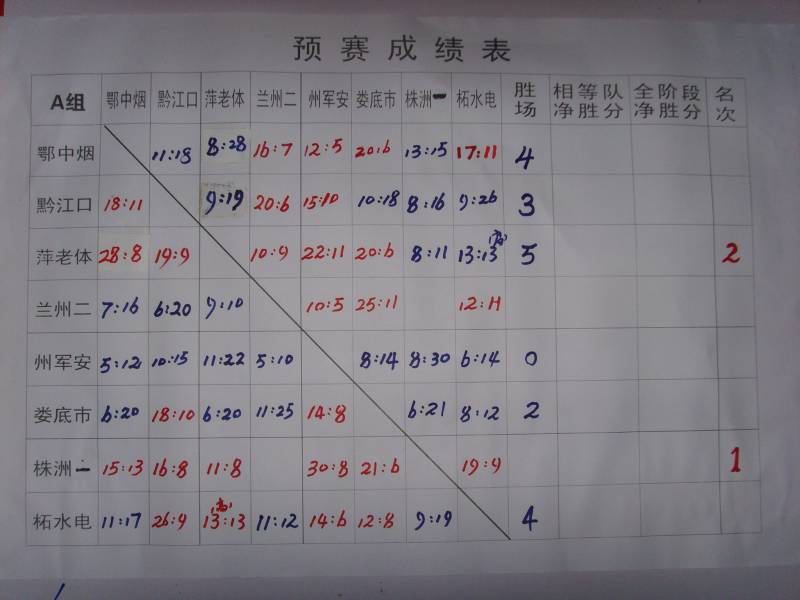 预赛成绩表
A组 鄂中烟 黔江口 萍老体 兰州二 州军安 娄底市 株洲一 柘水电 胜场 相等队净胜分 全阶段净胜分 名次
鄂中烟 11:18 8:28 16:7 12:5 20:6 13:15 17:11 4
黔江口 18:11 9:19 20:6 15:10 10:18 8:16 9:26 3
萍老体 28:8 19:9 10:9 22:11 20:6 8:11 13:13 5 2
兰州二 7:16 6:20 9:10 10:5 25:11 12:11
州军安 5:12 10:15 11:22 5:10 8:14 8:30 6:14 0
娄底市 6:20 18:10 6:20 11:25 14:8 6:21 8:12 2
株洲一 15:13 16:8 11:8 30:8 21:6 19:9 1
柘水电 11:17 26:9 13:13 11:12 14:6 12:8 9:19 4